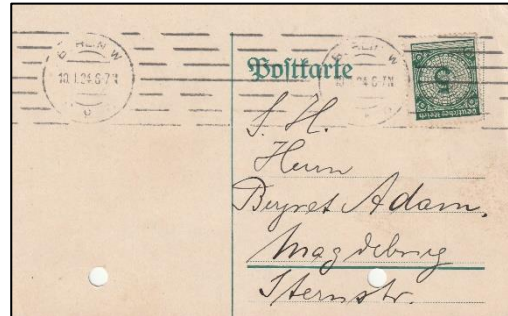 BERLIN W
10.1.24.6-7N
Postkarte
BERLIN W
10.1.24.6-7N
5
Deutsches Reich
S. H.
Herrn
Adam,
Magdeburg
Sternstr.